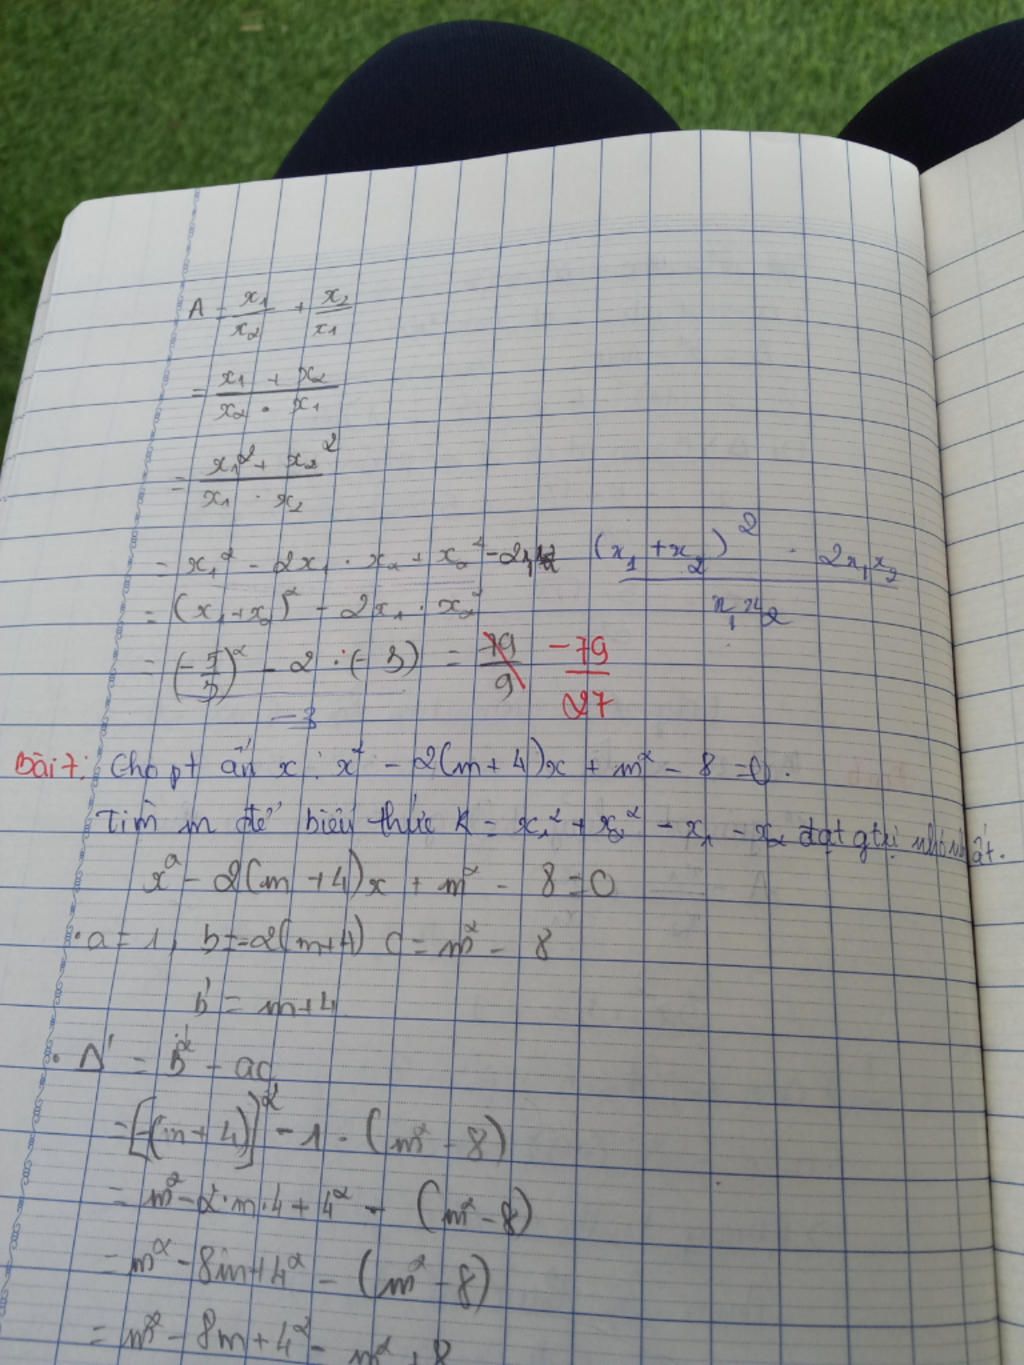 A = x₁/x₂ + x₂/x₁
= (x₁ + x₂)/(x₂ · x₁)
= (x₁² + x₂²)/(x₁ · x₂)
= x₁² - 2x₁ · x₂ + x₂² - 2x₁x₂ ((x₁ + x₂)² - 2x₁x₂)/(x₁x₂)
= (x₁ + x₂)² - 2x₁ · x₂
= ((-5/3)² - 2 · (-3))/(-3) = 79/9 -79/27
Bài 7: Cho pt ẩn x: x² - 2(m + 4)x + m² - 8 = 0.
Tìm m để biểu thức K = x₁² + x₂² - x₁ - x₂ đạt gtrị nhỏ nhất.
x² - 2(m + 4)x + m² - 8 = 0
· a = 1, b = -2(m+4) c = m² - 8
b' = m+4
· Δ' = b'² - ac
= [-(m + 4)]² - 1 · (m² - 8)
= m² - 2·m·4 + 4² - (m² - 8)
= m² - 8m + 4² - (m² - 8)
= m² - 8m + 4² - m² + 8